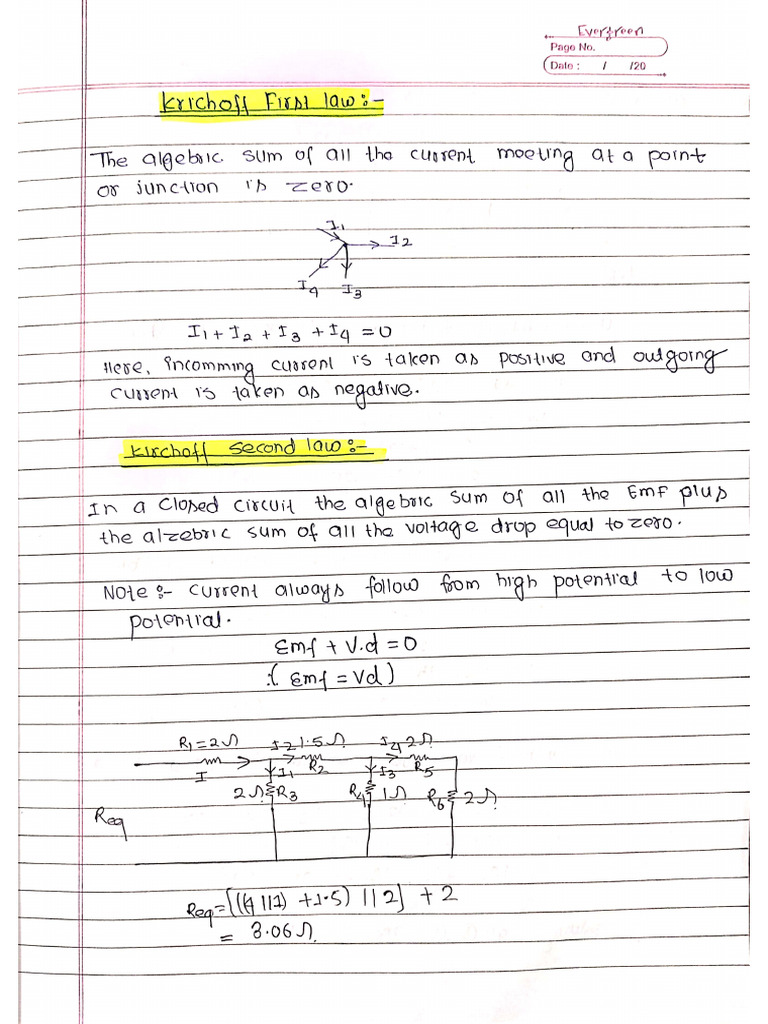 Evergreen
Page No.
Date : / /20
Krichoff First law:-
The algebric sum of all the current meeting at a point
or junction is zero.
I1
I2
I4 I3
I1 + I2 + I3 + I4 = 0
Here, incomming current is taken as positive and outgoing
current is taken as negative.
Kirchoff second law:-
In a closed circuit the algebric sum of all the Emf plus
the alzebric sum of all the voltage drop equal to zero.
Note:- current always follow from high potential to low
potential.
Emf + V.d = 0
:( Emf = Vd)
R1=2Ω I2 1.5Ω I4 2Ω
I I1 R2 I3 R5
2Ω R3 R4 1Ω R6 2Ω
Req
Req=[((4||1) +1.5) ||2] + 2
= 3.06Ω